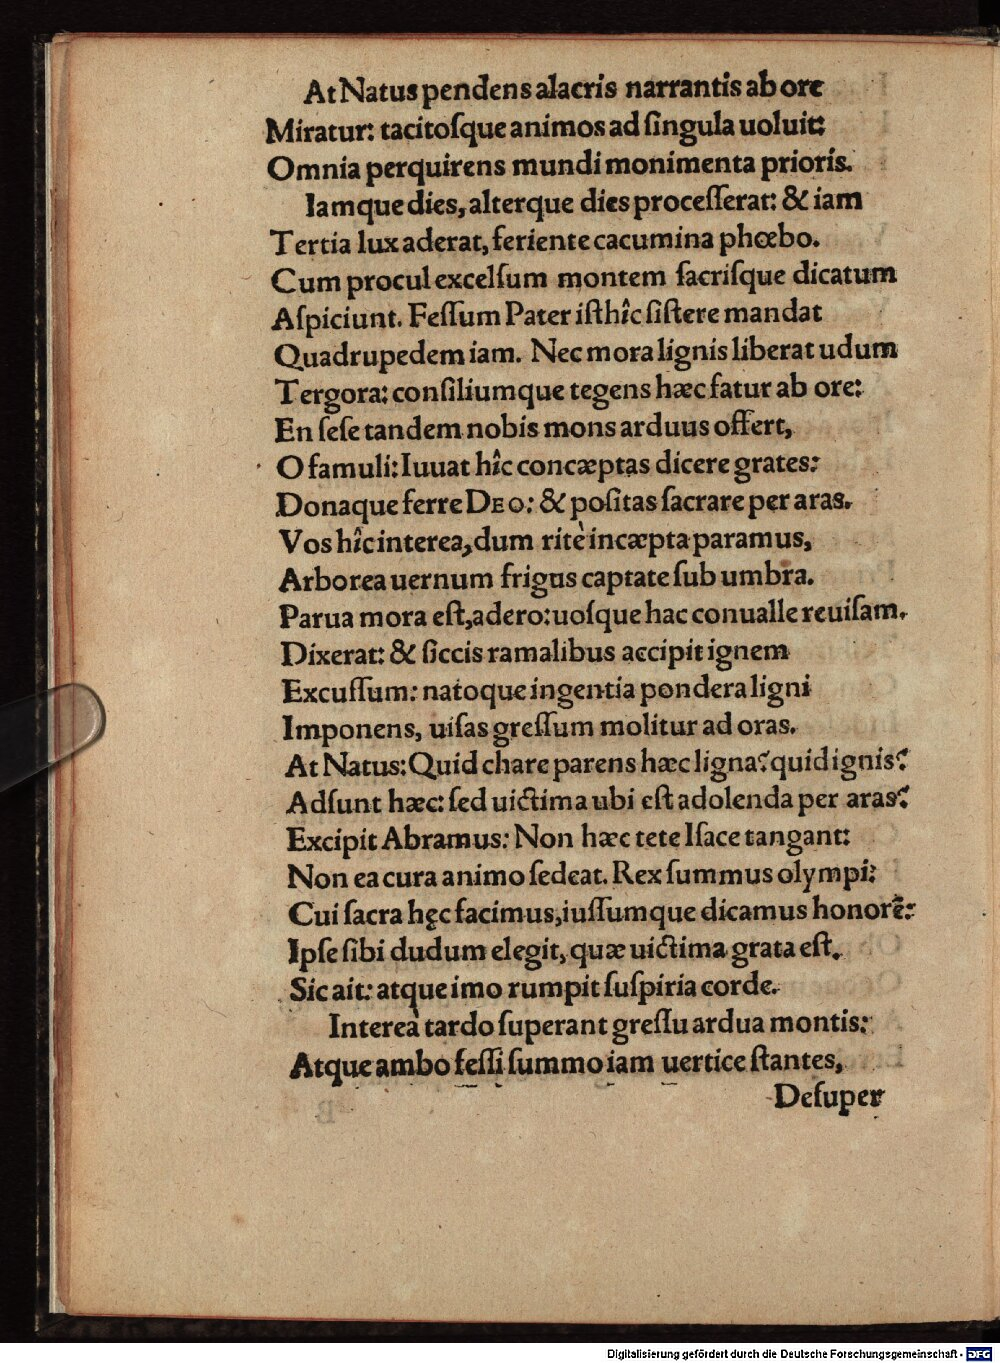 At Natus pendens alacris narrantis ab ore
Miratur: tacitoſque animos ad ſingula uoluit:
Omnia perquirens mundi monimenta prioris.
Iamque dies, alterque dies proceſſerat: & iam
Tertia lux aderat, feriente cacumina phœbo.
Cum procul excelſum montem ſacriſque dicatum
Aſpiciunt. Feſſum Pater iſthîc ſiſtere mandat
Quadrupedem iam. Nec mora lignis liberat udum
Tergora: conſiliumque tegens hæc fatur ab ore:
En ſeſe tandem nobis mons arduus offert,
O famuli: Iuuat hîc concæptas dicere grates:
Donaque ferre DEO: & poſitas ſacrare per aras.
Vos hîc interea, dum ritè incæpta paramus,
Arborea uernum frigus captate ſub umbra.
Parua mora eſt, adero: uoſque hac conualle reuiſam.
Dixerat: & ſiccis ramalibus accipit ignem
Excuſſum: natoque ingentia pondera ligni
Imponens, uiſas greſſum molitur ad oras.
At Natus: Quid chare parens hæc ligna? quid ignis?
Adſunt hæc: ſed uictima ubi eſt adolenda per aras?
Excipit Abramus: Non hæc te te Iſace tangant:
Non ea cura animo ſedeat. Rex ſummus olympi:
Cui ſacra hęc facimus, iuſſumque dicamus honorē:
Ipſe ſibi dudum elegit, quæ uictima grata eſt.
Sic ait: atque imo rumpit ſuſpiria corde.
Intereà tardo ſuperant greſſu ardua montis:
Atque ambo feſſi ſummo iam uertice ſtantes,
Deſuper
Digitalisierung gefördert durch die Deutsche Forschungsgemeinschaft - DFG